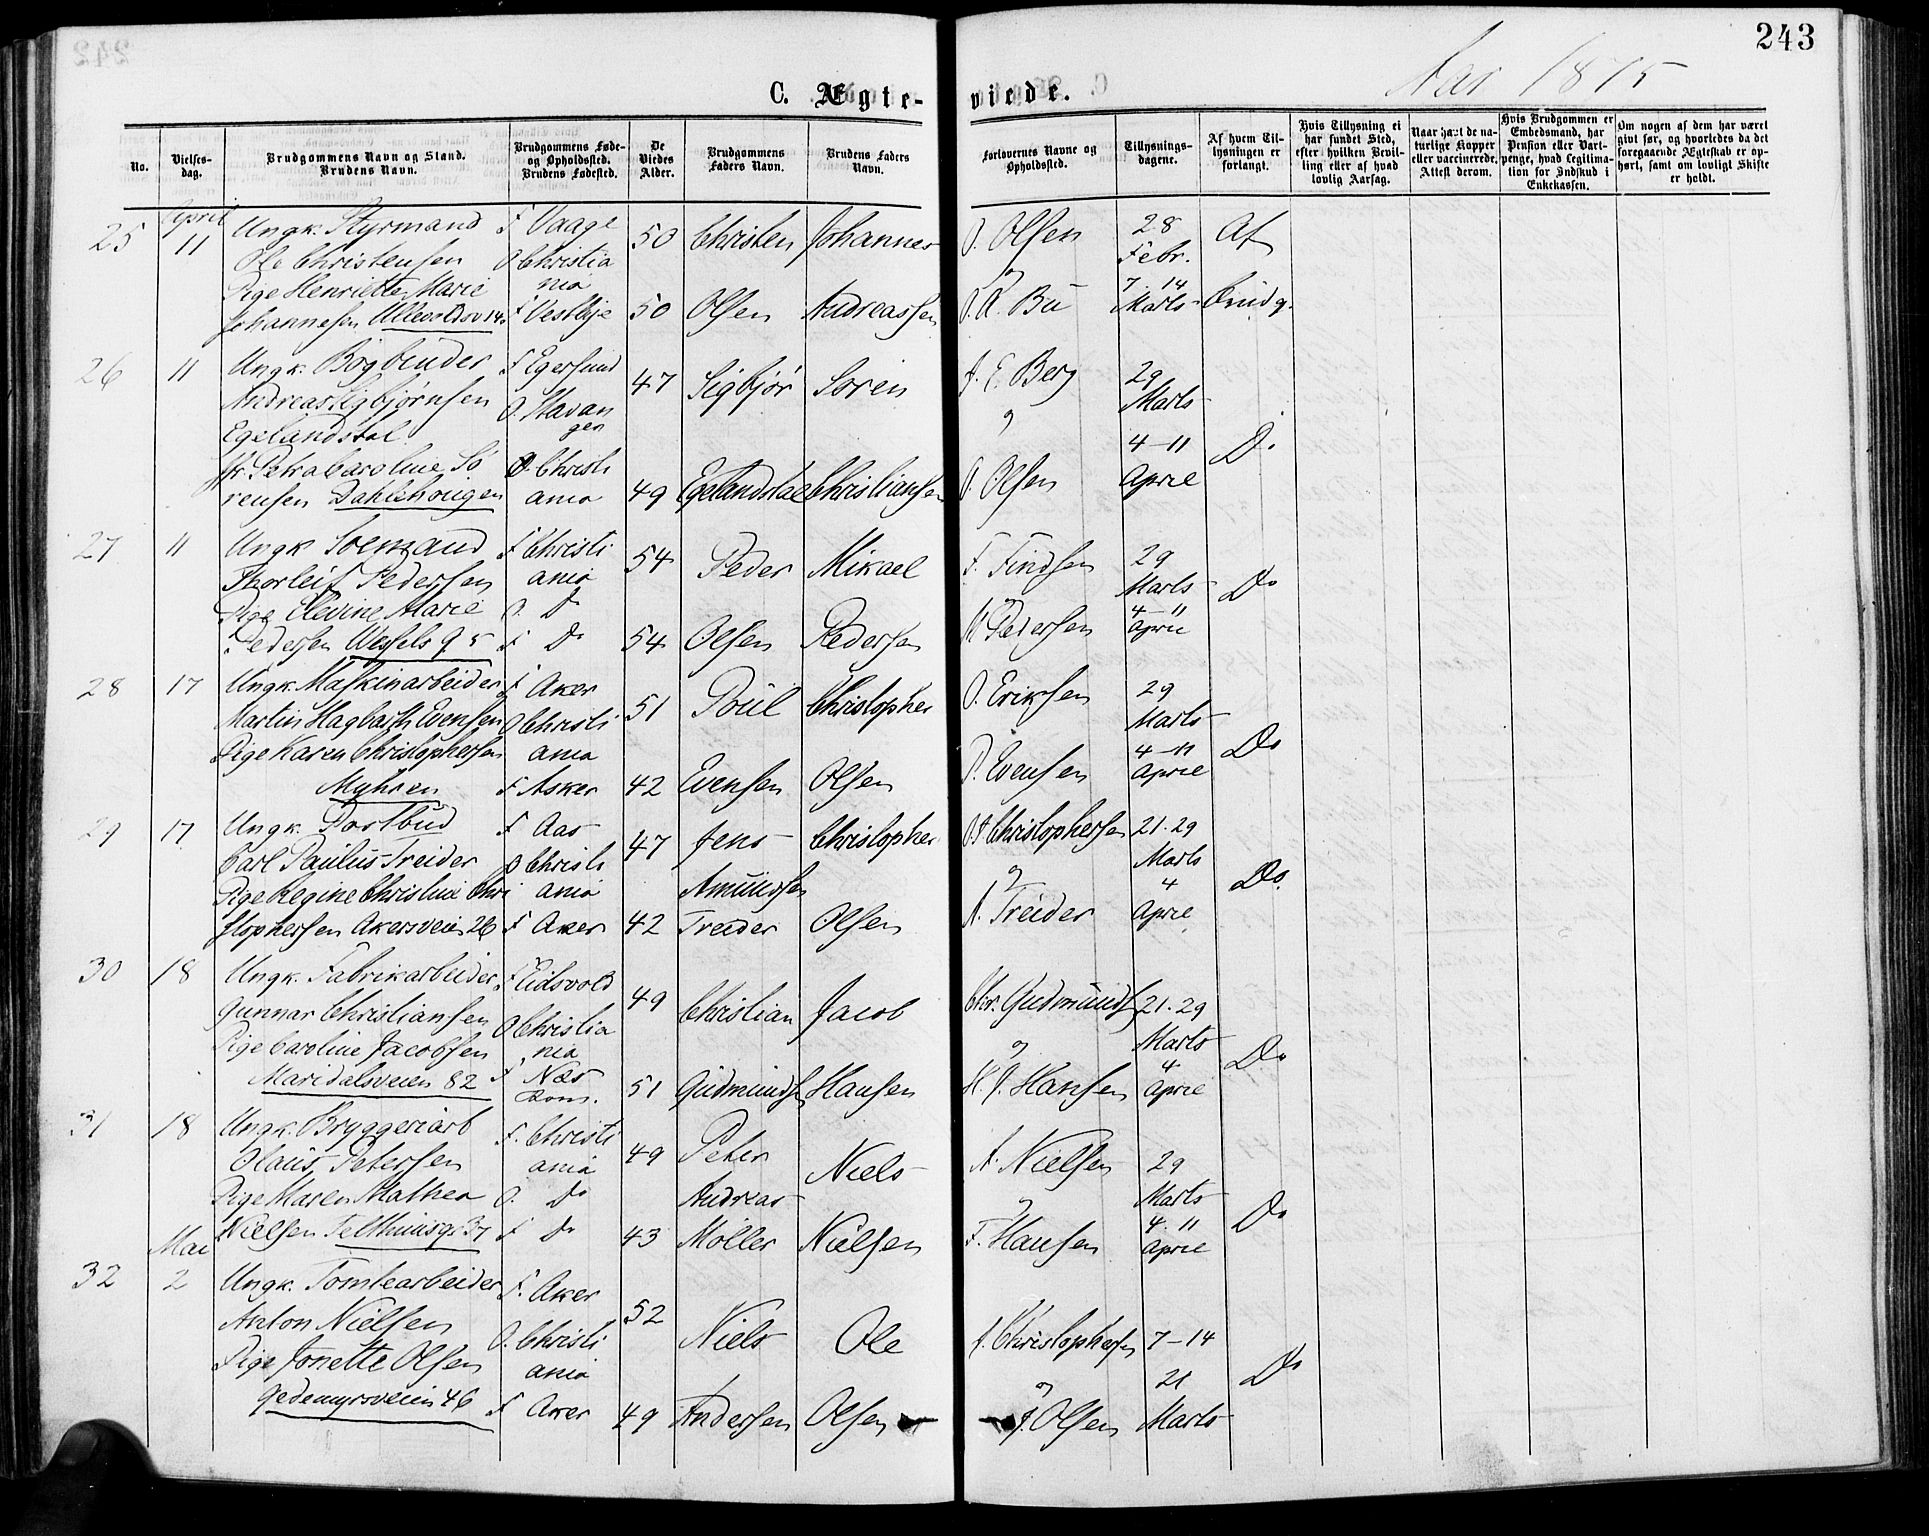 243
Aar 1875
C. Ægte-
viede.
No.
Vielses-
dag.
Brudgommens Navn og Stand.
Brudens Navn.
Brudgommens Føde-
og Opholdssted.
Brudens Fødested.
De
Viedes
Alder.
Brudgommens
Faders Navn.
Brudens Faders
Navn.
Forlovernes Navne og
Opholdssted.
Tillysnings-
dagene.
Af hvem Til-
lysningen er
forlangt.
Hvis Tillysning ei
har fundet Sted,
efter hvilken Bevil-
ling eller af hvad
lovlig Aarsag.
Naar havt de na-
turlige Kopper
eller vaccinerede.
Attest derom.
Hvis Brudgommen er
Embedsmand, har
Pension eller Vart-
penge, hvad Legitima-
tion for Indskud i
Enkekassen.
Om nogen af dem har været
givt før, og hvorledes da det
foregaaende Ægteskab er op-
hørt, samt om lovligt Skifte
er holdt.
April
25 11 Ungk. Styrmand F Vaage 50 Christen Johannes O. Olsen 28 Af
Ole Christensen O Christia Febr.
Pige Henriette Marie nia & 7. 14
Johannesen Ullevoldsv 14 F Vestbye 50 Olsen Andreassen O. A. Bu Marts Brudg.
26 11 Ungk. Bogbinder F Egersund 47 Sigbjør Soren J. E. Berg 29
Andreas Sigbjørnsen O. Stavan & Marts
Egelandsdal ger 4-11 Do
Jfr. Petra Caroline Sö O. Christi
rensen Dahlehougen ania 49 Egelandsdal Christiansen O. Olsen April
27 11 Ungk Soemand F Christi 54 Peder Mikael F. Findsen 29
Thorleif Pedersen ania Marts Do
Pige Elevine Marie O. Do & 4-11
Pedersen Wessels g 5 F Do 54 Olsen Pedersen M Pedersen April
28 17 Ungk. Maskinarbeider F Aker 51 Poul Christopher O. Eriksen 29
Martin Hagbarth Evensen O Christi Marts
Pige Karen Christophersen ania 4-11 Do
Myhren F Asker 42 Evensen Olsen P. Evensen April
29 17 Ungk. Postbud F Aas 47 Jens Christopher Christophersen 21. 29
Carl Paulus Treider O Christi Marts
Pige Regine Christine Chri ania Amundsen & 4 Do.
stophersen Akersveien 26 F Aker 42 Treider Olsen A. Treider April
30 18 Ungk. Fabrikarbeider F Eidsvold 49 Christian Jacob Chr. Gudmunds 21. 29
Gunnar Christiansen O Christia
Pige Caroline Jacobsen nia & Marts Do
Maridalsveien 82 F Næs 51 Gudmunds Hansen H. J. Hansen 4 April
Rom.
31 18 Ungk. Bryggeriarb F. Christi 49 Peter Niels A. Nielsen 29
Olaus Petersen ania
Pige Maren Mathea O. Do Andreas & Marts Do
Nielsen Telthusg. 37 F Do 43 Möller Nielsen F. Hansen 4. 11 April
Mai
32 2 Ungk. Tomtearbeider F. Aker 52 Niels Ole J. Christophersen 7-14
Anton Nielsen O. Christi
Pige Jonette Olsen ania & 21 Do
Gedemyrsveien 46 F Aker 49 Andersen Olsen J. Olsen Marts